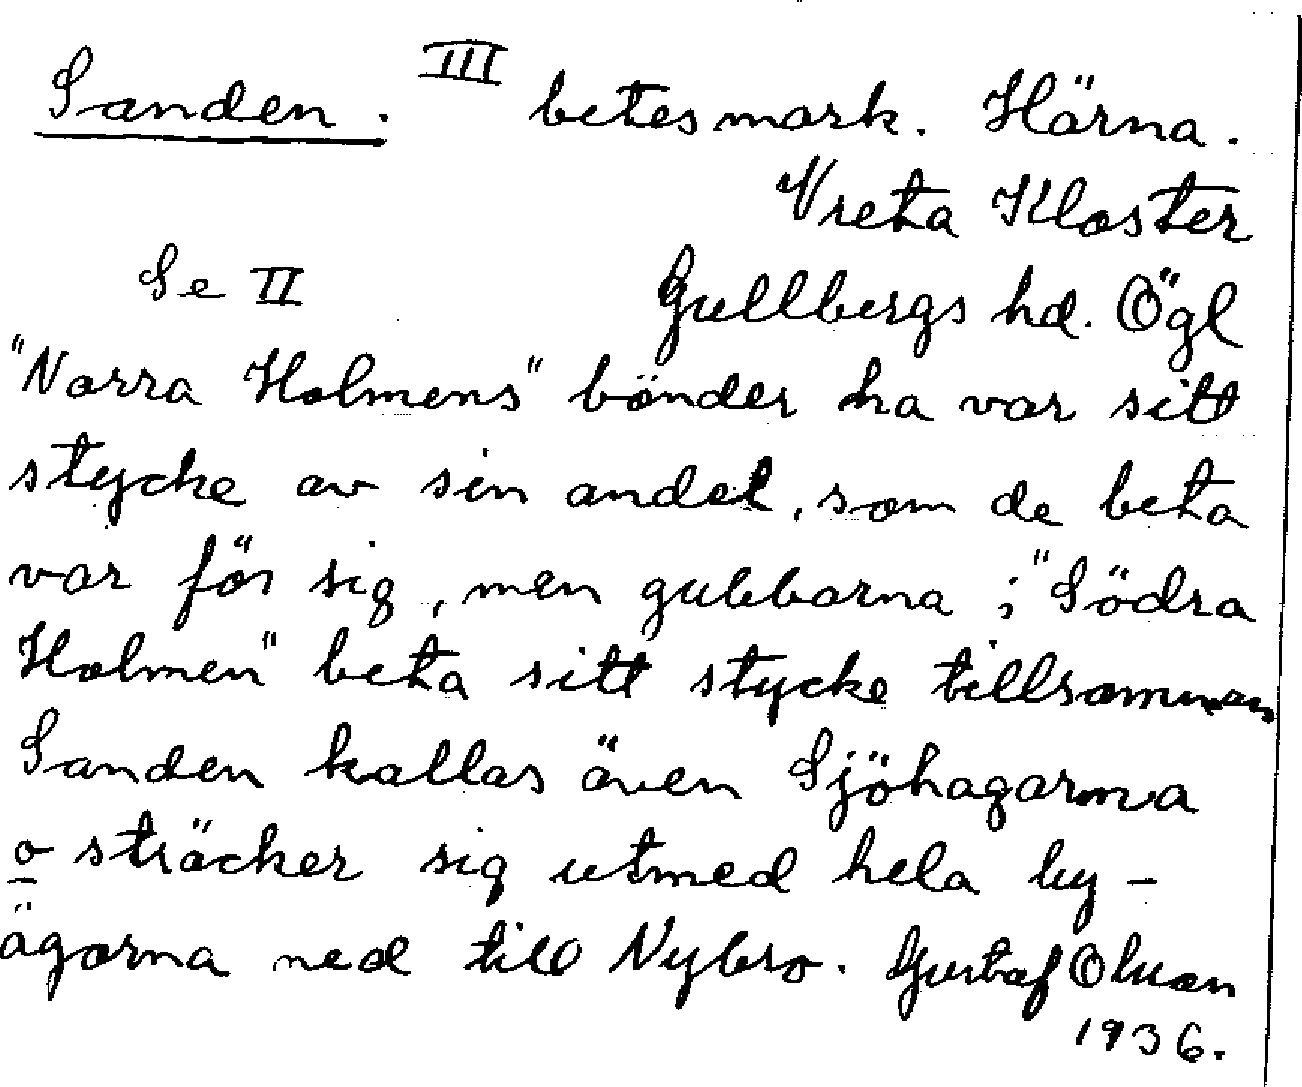 Sanden. III betesmark. Härna.
Vreta Kloster
Se II Gullbergs hd. Ögl
"Norra Holmens" bönder ha var sitt
stycke av sin andel, som de beta
var för sig, men gubbarna i "Södra
Holmen" beta sitt stycke tillsamman
Sanden kallas även Sjöhagarna
o sträcker sig utmed hela by-
ägorna ned till Nybro. Gustaf Olsson
1936.